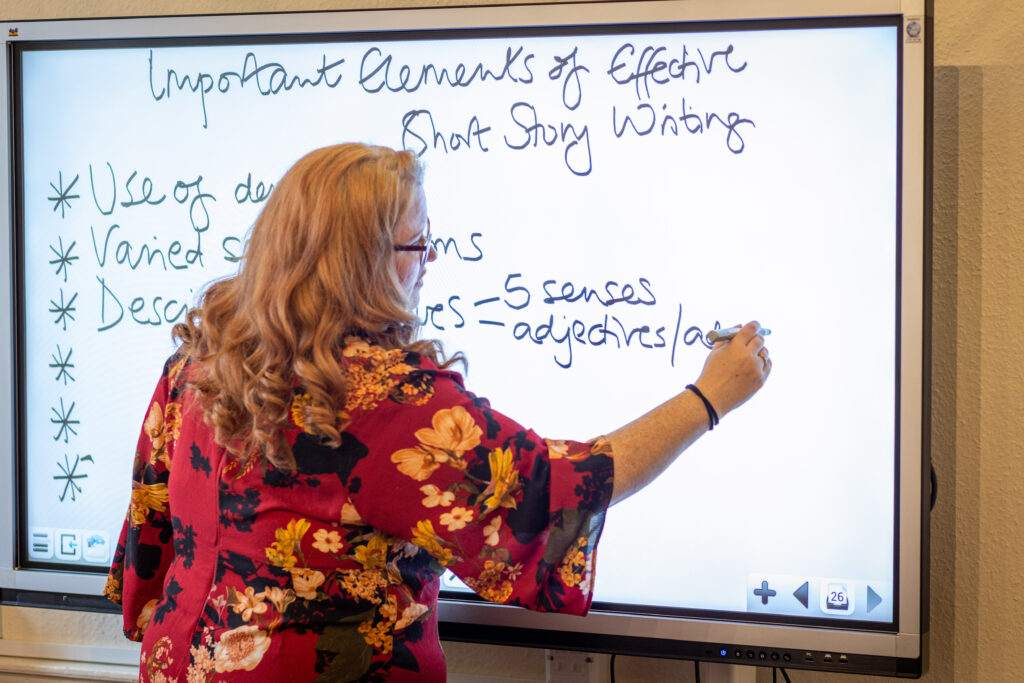 Important Elements of Effective
Short Story Writing
* Use of
* Varied
* - 5 senses
- adjectives/
*
*
*
26